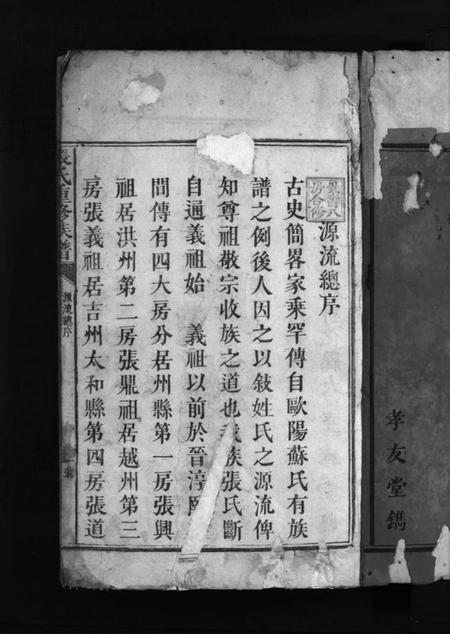 孝友堂鐫
源流總序
古史簡畧家乘罕傳自歐陽蘇氏有族
譜之例後人因之以敍姓氏之源流俾
知尊祖敬宗收族之道也我族張氏斷
自遁義祖始 義祖以前於晉淳
間傳有四大房分居州縣第一房張興
祖居洪州第二房張鼎祖居越州第三
房張義祖居吉州太和縣第四房張道
張氏重修族譜
源流總序